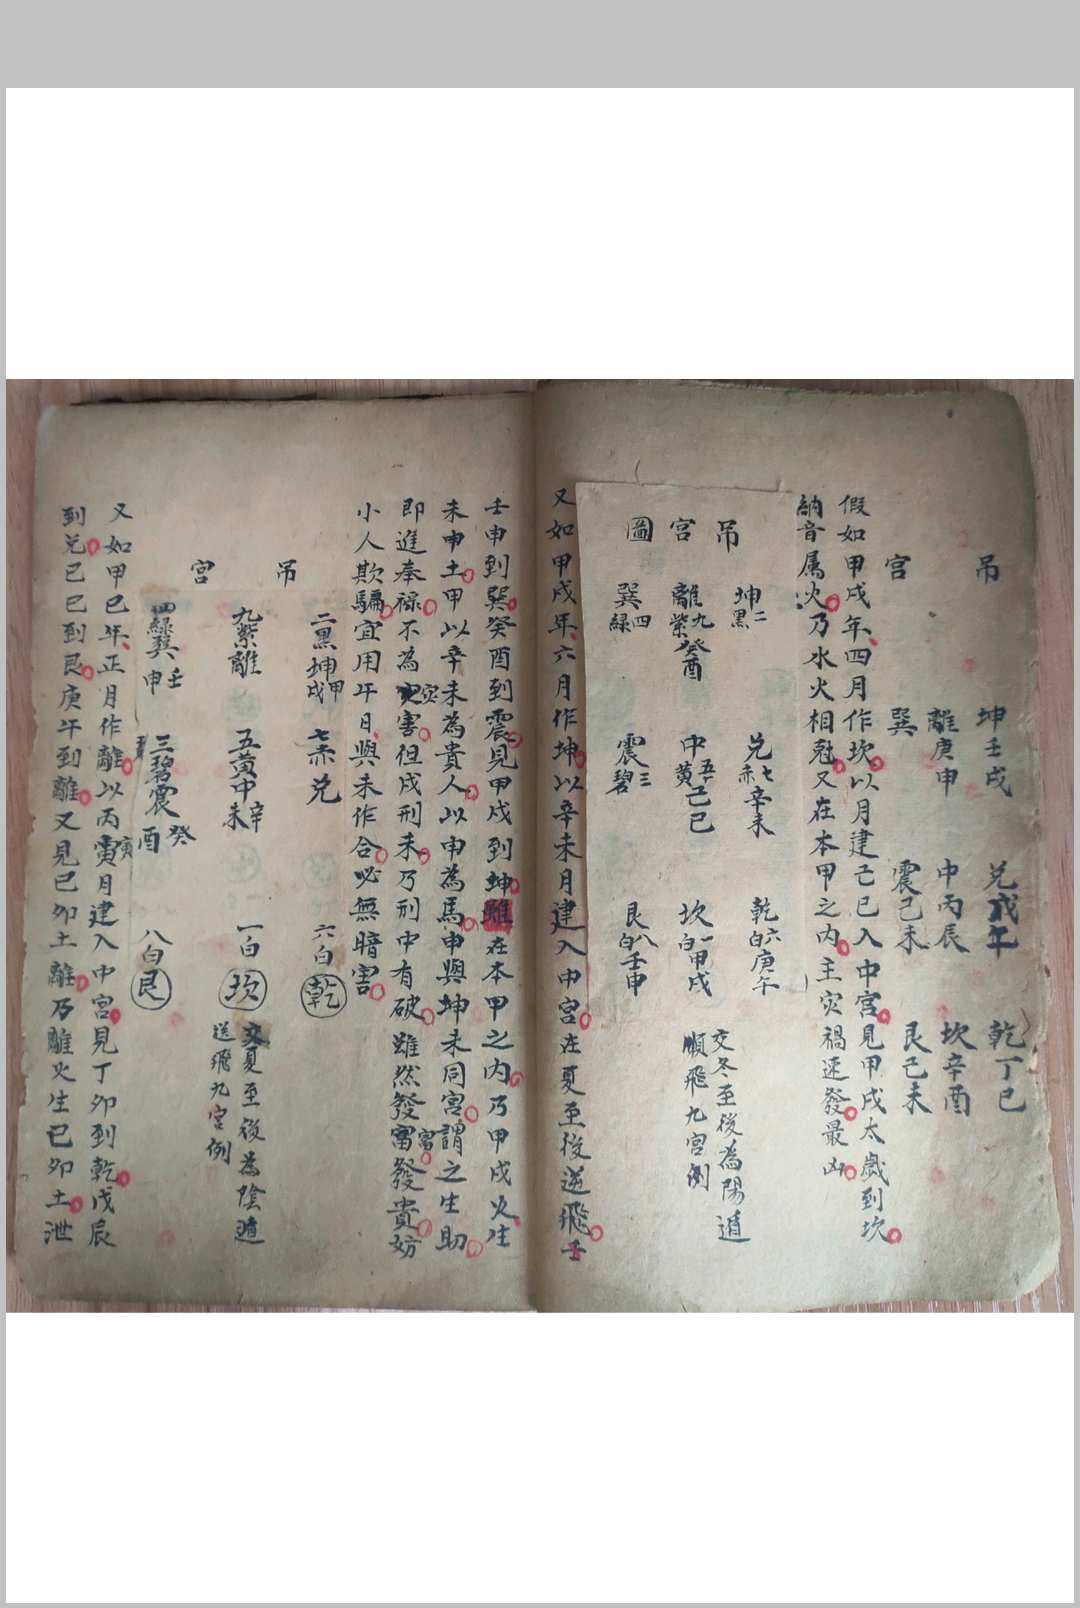 吊
宮
坤壬戌 兌戌午 乾丁巳
離庚申 中丙辰 坎辛酉
巽 震己未 艮己未
假如甲戌年四月作坎以月建己巳入中宮見甲戌太歲到坎
納音属火乃水火相尅又在本甲之内主灾禍速發最凶
吊
宮
圖
坤二黑 兌七赤辛未 乾六白庚午
離九紫癸酉 中五黃己巳 坎一白甲戌
巽四綠 震三碧 艮八白壬申
交冬至後為陽遁
順飛九宮例
又如甲戌年六月作坤以辛未月建入中宮在夏至後逆飛壬
壬申到巽癸酉到震見甲戌到坤雖在本甲之内乃甲戌火生
未申土甲以辛未為貴人以申為馬申與坤未同宮謂之生助
即進奉祿不為灾害但戌刑未乃刑中有破雖然發富發貴妨
小人欺騙宜用午日與未作合必無暗害
吊
宮
二黑坤甲戌 七赤兌 六白乾
九紫離 五黃中辛未 一白坎
四綠巽壬申 三碧震癸酉 八白艮
交夏至後為陰遁
送飛九宮例
又如甲己年正月作離以丙寅月建入中宮見丁卯到乾戊辰
到兌己巳到艮庚午到離又見己卯土離乃離火生己卯土泄